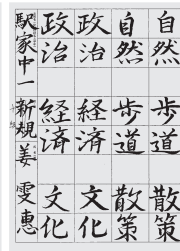 自然
歩道
散策
自然
歩道
散策
政治
経済
文化
政治
経済
文化
駅家中一 新規 姜 雯惠